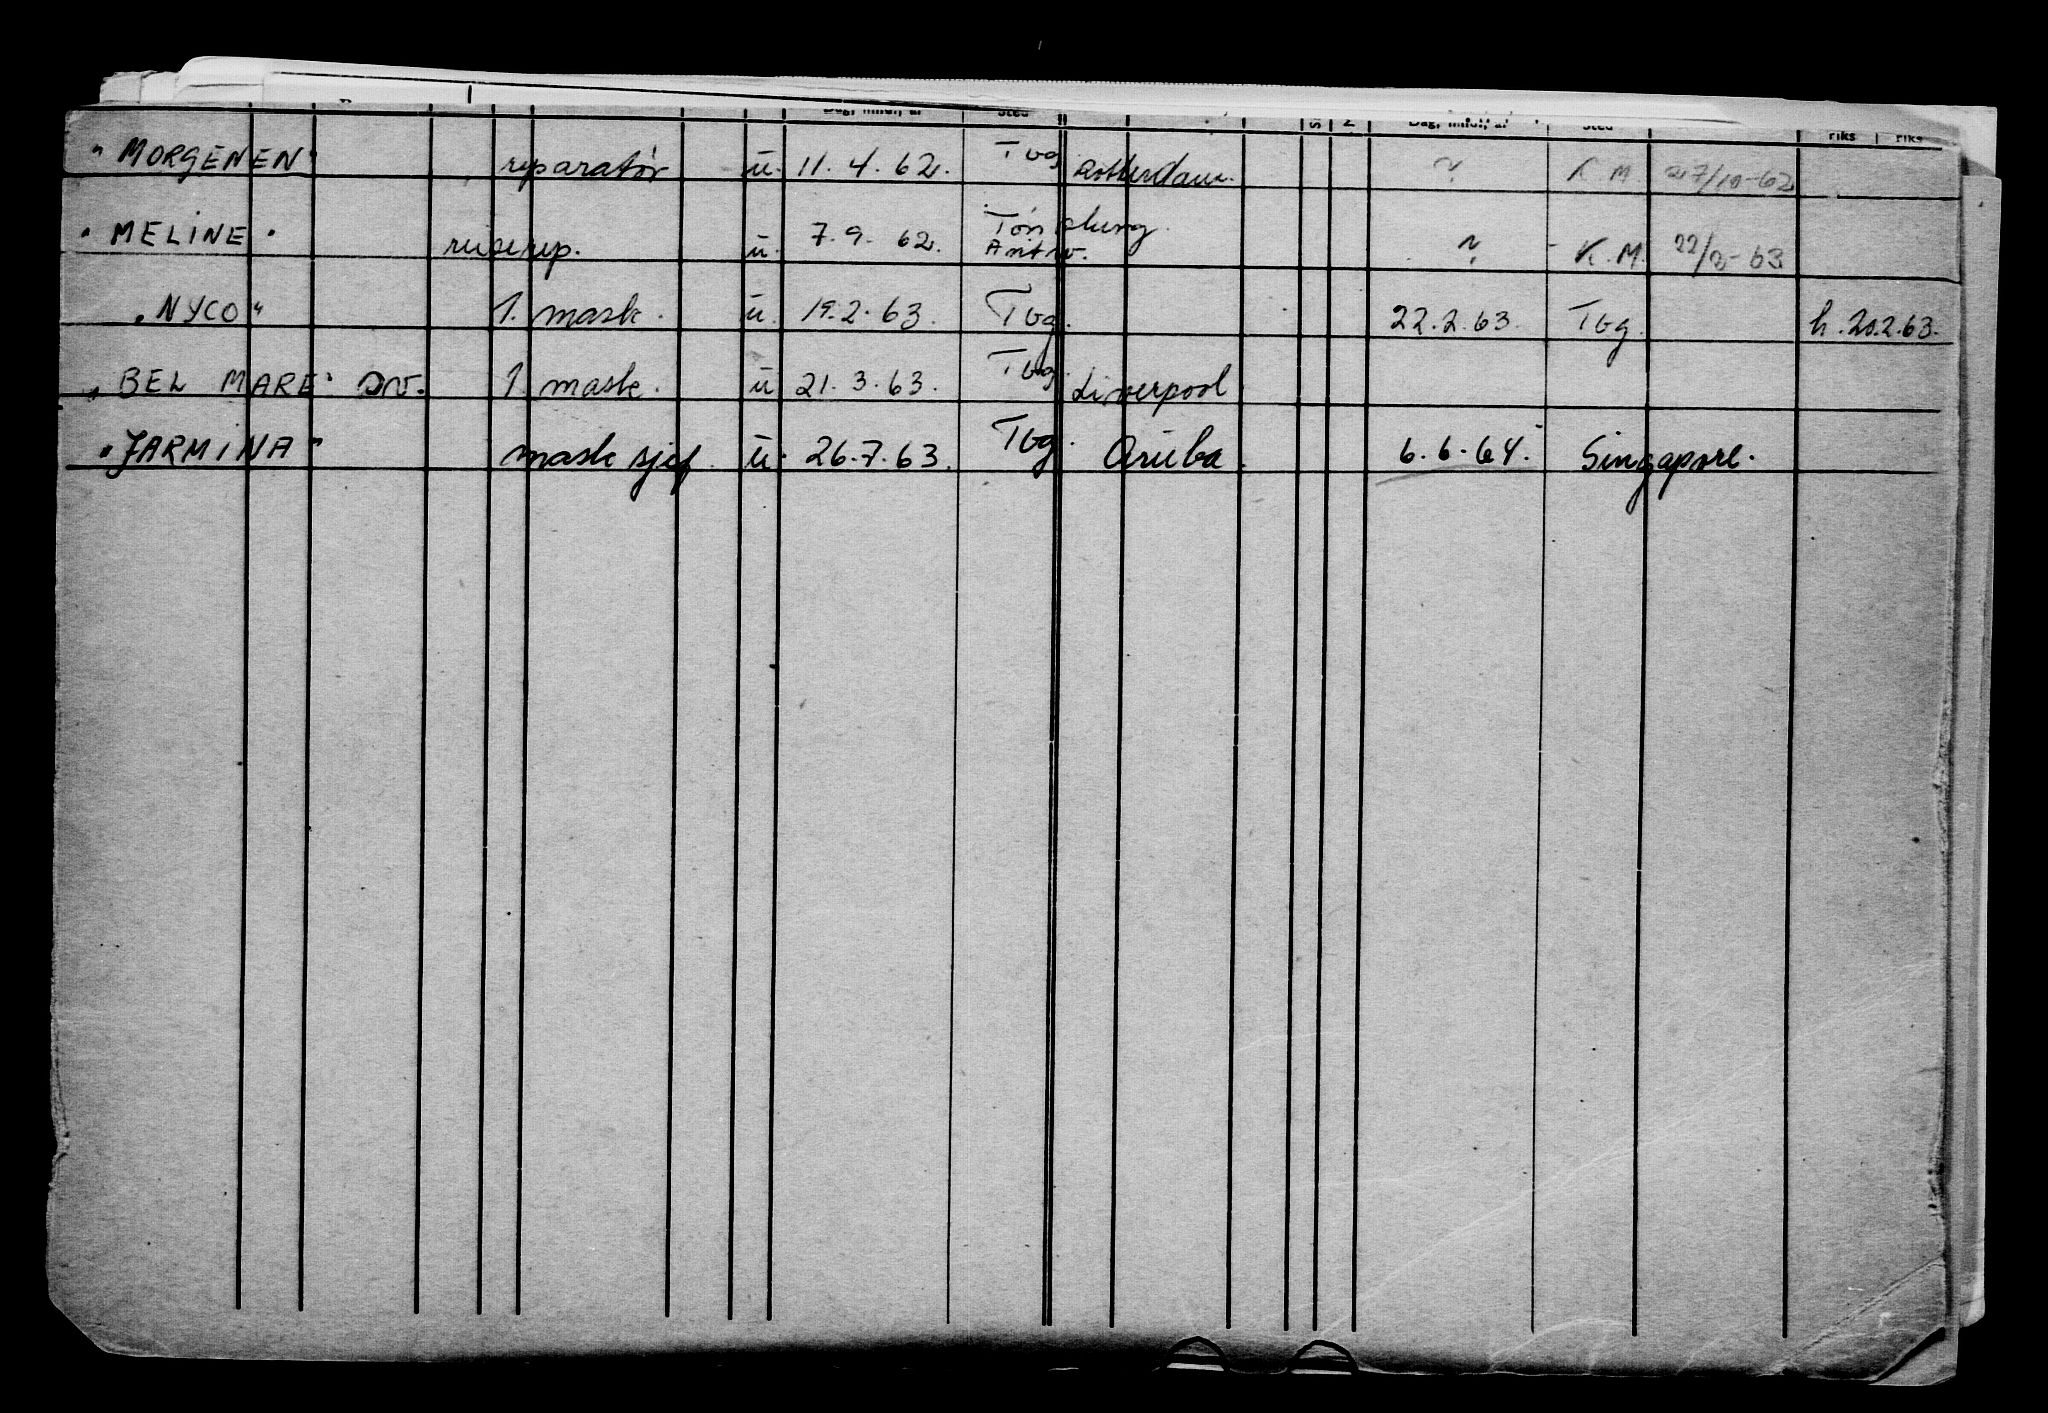 Dag, mnd., år Sted Dag, mnd., år Sted riks riks
"MORGENEN" reparatør u. 11.4.62. Tbg. Rotterdam. ? K M. 27/10-62
"MELINE" reiserep. u. 7.9.62. Tønsberg. Antw. ? - K.M. 22/3-63
"NYCO" 1. mask. u. 19.2.63. Tbg. 22.2.63. Tbg. h. 20.2.63.
"BEL MARE" 1. mask. u 21.3.63. Tbg. Liverpool
"JARMINA" mask sjef. u. 26.7.63. Tbg. Aruba. 6.6.64. Singapore.